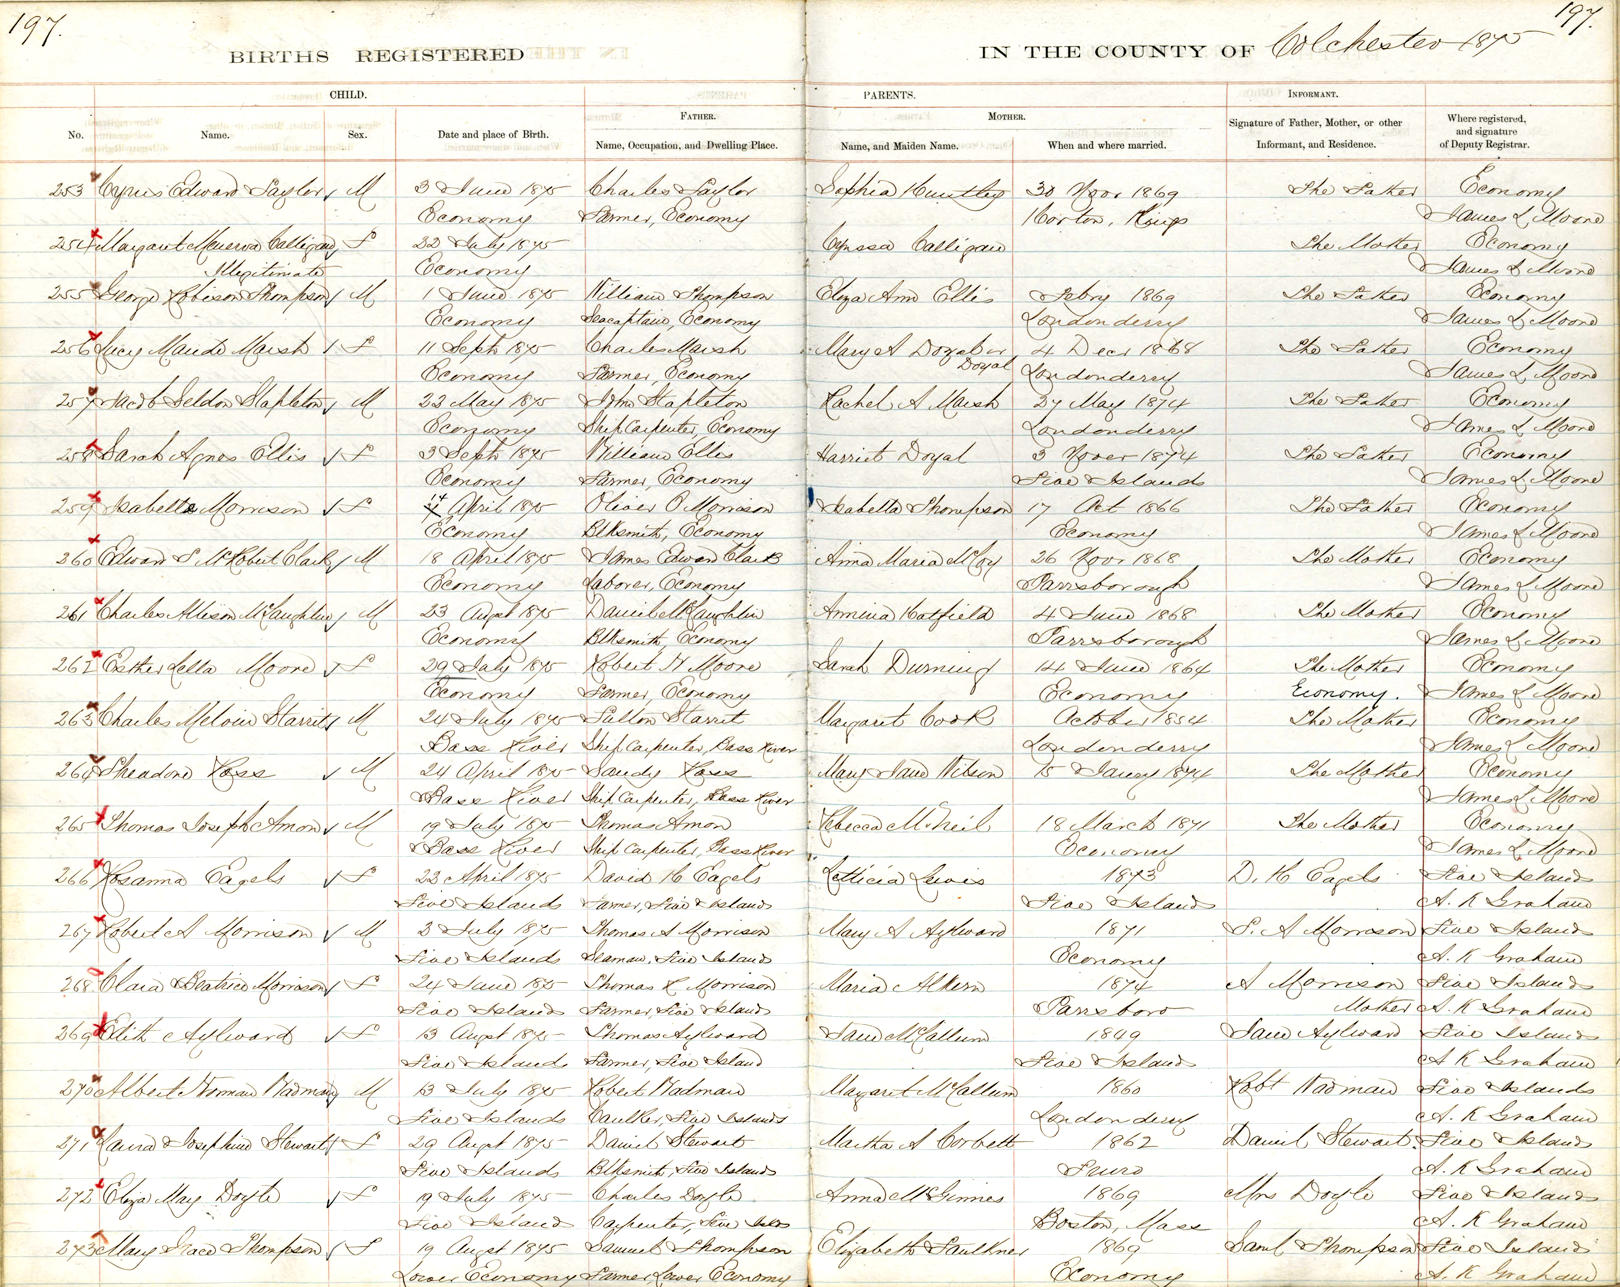 197.
197.
BIRTHS REGISTERED
IN THE COUNTY OF Colchester 1875
CHILD.
PARENTS.
INFORMANT.
FATHER.
MOTHER.
No.
Name.
Sex.
Date and place of Birth.
Name, Occupation, and Dwelling Place.
Name, and Maiden Name.
When and where married.
Signature of Father, Mother, or other Informant, and Residence.
Where registered, and signature of Deputy Registrar.
253 Cyrus Edward Taylor M 3 June 1875 Charles Taylor Sophia Huntley 30 Novr 1869 The Father Economy
Economy Farmer, Economy Horton, Kings James L Moore
254 Margaret Menerva Calligan F 22 July 1875 Calligan The Mother Economy
Illegitimate Economy James L Moore
255 George Robison Thompson M 1 June 1875 William Thompson Eliza Ann Ellis Febry 1869 The Father Economy
Economy Seacaptain, Economy Londonderry James L Moore
256 Lucy Maude Marsh F 11 Septr 1875 Charles Marsh Mary A Doyal 4 Decr 1868 The Father Economy
Economy Farmer, Economy Londonderry James L Moore
257 Jacob Seldon Stapleton M 22 May 1875 John Stapleton Rachel A Marsh 27 May 1874 The Father Economy
Economy Ship Carpenter, Economy Londonderry James L Moore
258 Sarah Agnes Ellis F 3 Septr 1875 William Ellis Harriet Doyal 3 Nover 1874 The Father Economy
Economy Farmer, Economy Five Islands James L Moore
259 Isabella Morrison F 14 April 1875 Oliver P Morrison Isabella Thompson 17 Oct 1866 The Father Economy
Economy Blksmith, Economy Economy James L Moore
260 Edward S McRobert Clark M 18 April 1875 James Edward Clark Anna Maria McCoy 26 Novr 1868 The Mother Economy
Economy Laborer, Economy Parrsborough James L Moore
261 Charles Allison McLaughlin M 23 Augst 1875 Daniel McLaughlin Armina Hatfield 4 June 1868 The Mother Economy
Economy Blksmith, Economy Parrsborough James L Moore
262 Esther Lella Moore F 29 July 1875 Robert N Moore Sarah Durning 14 June 1864 The Mother Economy
Economy Farmer, Economy Economy Economy. James L Moore
263 Charles Melvin Starrit M 24 July 1875 Fulton Starrit Margaret Cook October 1854 The Mother Economy
Bass River Ship Carpenter, Bass River Londonderry James L Moore
264 Theadore Ross M 24 April 1875 Sandy Ross Mary Jane Wilson 15 Janry 1874 The Mother Economy
Bass River Ship Carpenter, Bass River James L Moore
265 Thomas Joseph Amon M 19 July 1875 Thomas Amon Rebecca McNeil 18 March 1871 The Mother Economy
Bass River Ship Carpenter, Bass River Economy James L Moore
266 Rosanna Eagels F 22 April 1875 David H Eagels Letticia Lewis 1873 D. H Eagels Five Islands
Five Islands Farmer, Five Islands Five Islands A. K Graham
267 Robert A Morrison M 3 July 1875 Thomas A Morrison Mary A Aylward 1871 T. A Morrison Five Islands
Five Islands Seaman, Five Islands Economy A. K Graham
268 Clara Beatrice Morrison F 24 June 1875 Thomas R Morrison Maria Alkern 1874 A Morrison Five Islands
Five Islands Farmer, Five Islands Parrsboro Mother A. K Graham
269 Edith Aylward F 13 Augst 1875 Thomas Aylward Jane McCallum 1849 Jane Aylward Five Islands
Five Islands Farmer, Five Island Five Islands A K Graham
270 Albert Norman Wadman M 13 July 1875 Robert Wadman Margaret McCallum 1860 Robt Wadman Five Islands
Five Islands Caulker, Five Islands Londonderry A. K Graham
271 Laura Josephine Stewart F 29 Augst 1875 Daniel Stewart Martha A Corbett 1862 Daniel Stewart. Five Islands
Five Islands Blksmith, Five Islands Truro A. K Graham
272 Eliza May Doyle F 19 July 1875 Charles Doyle Anna McGinnes 1869 Mrs Doyle Five Islands
Five Island Carpenter, Five Isles Boston, Mass A. K Graham
273 Mary Grace Thompson F 19 Augst 1875 Samuel Thompson Elizabeth Faulkner 1869 Saml Thompson Five Islands
Lower Economy Farmer, Lower Economy Economy A. K Graham